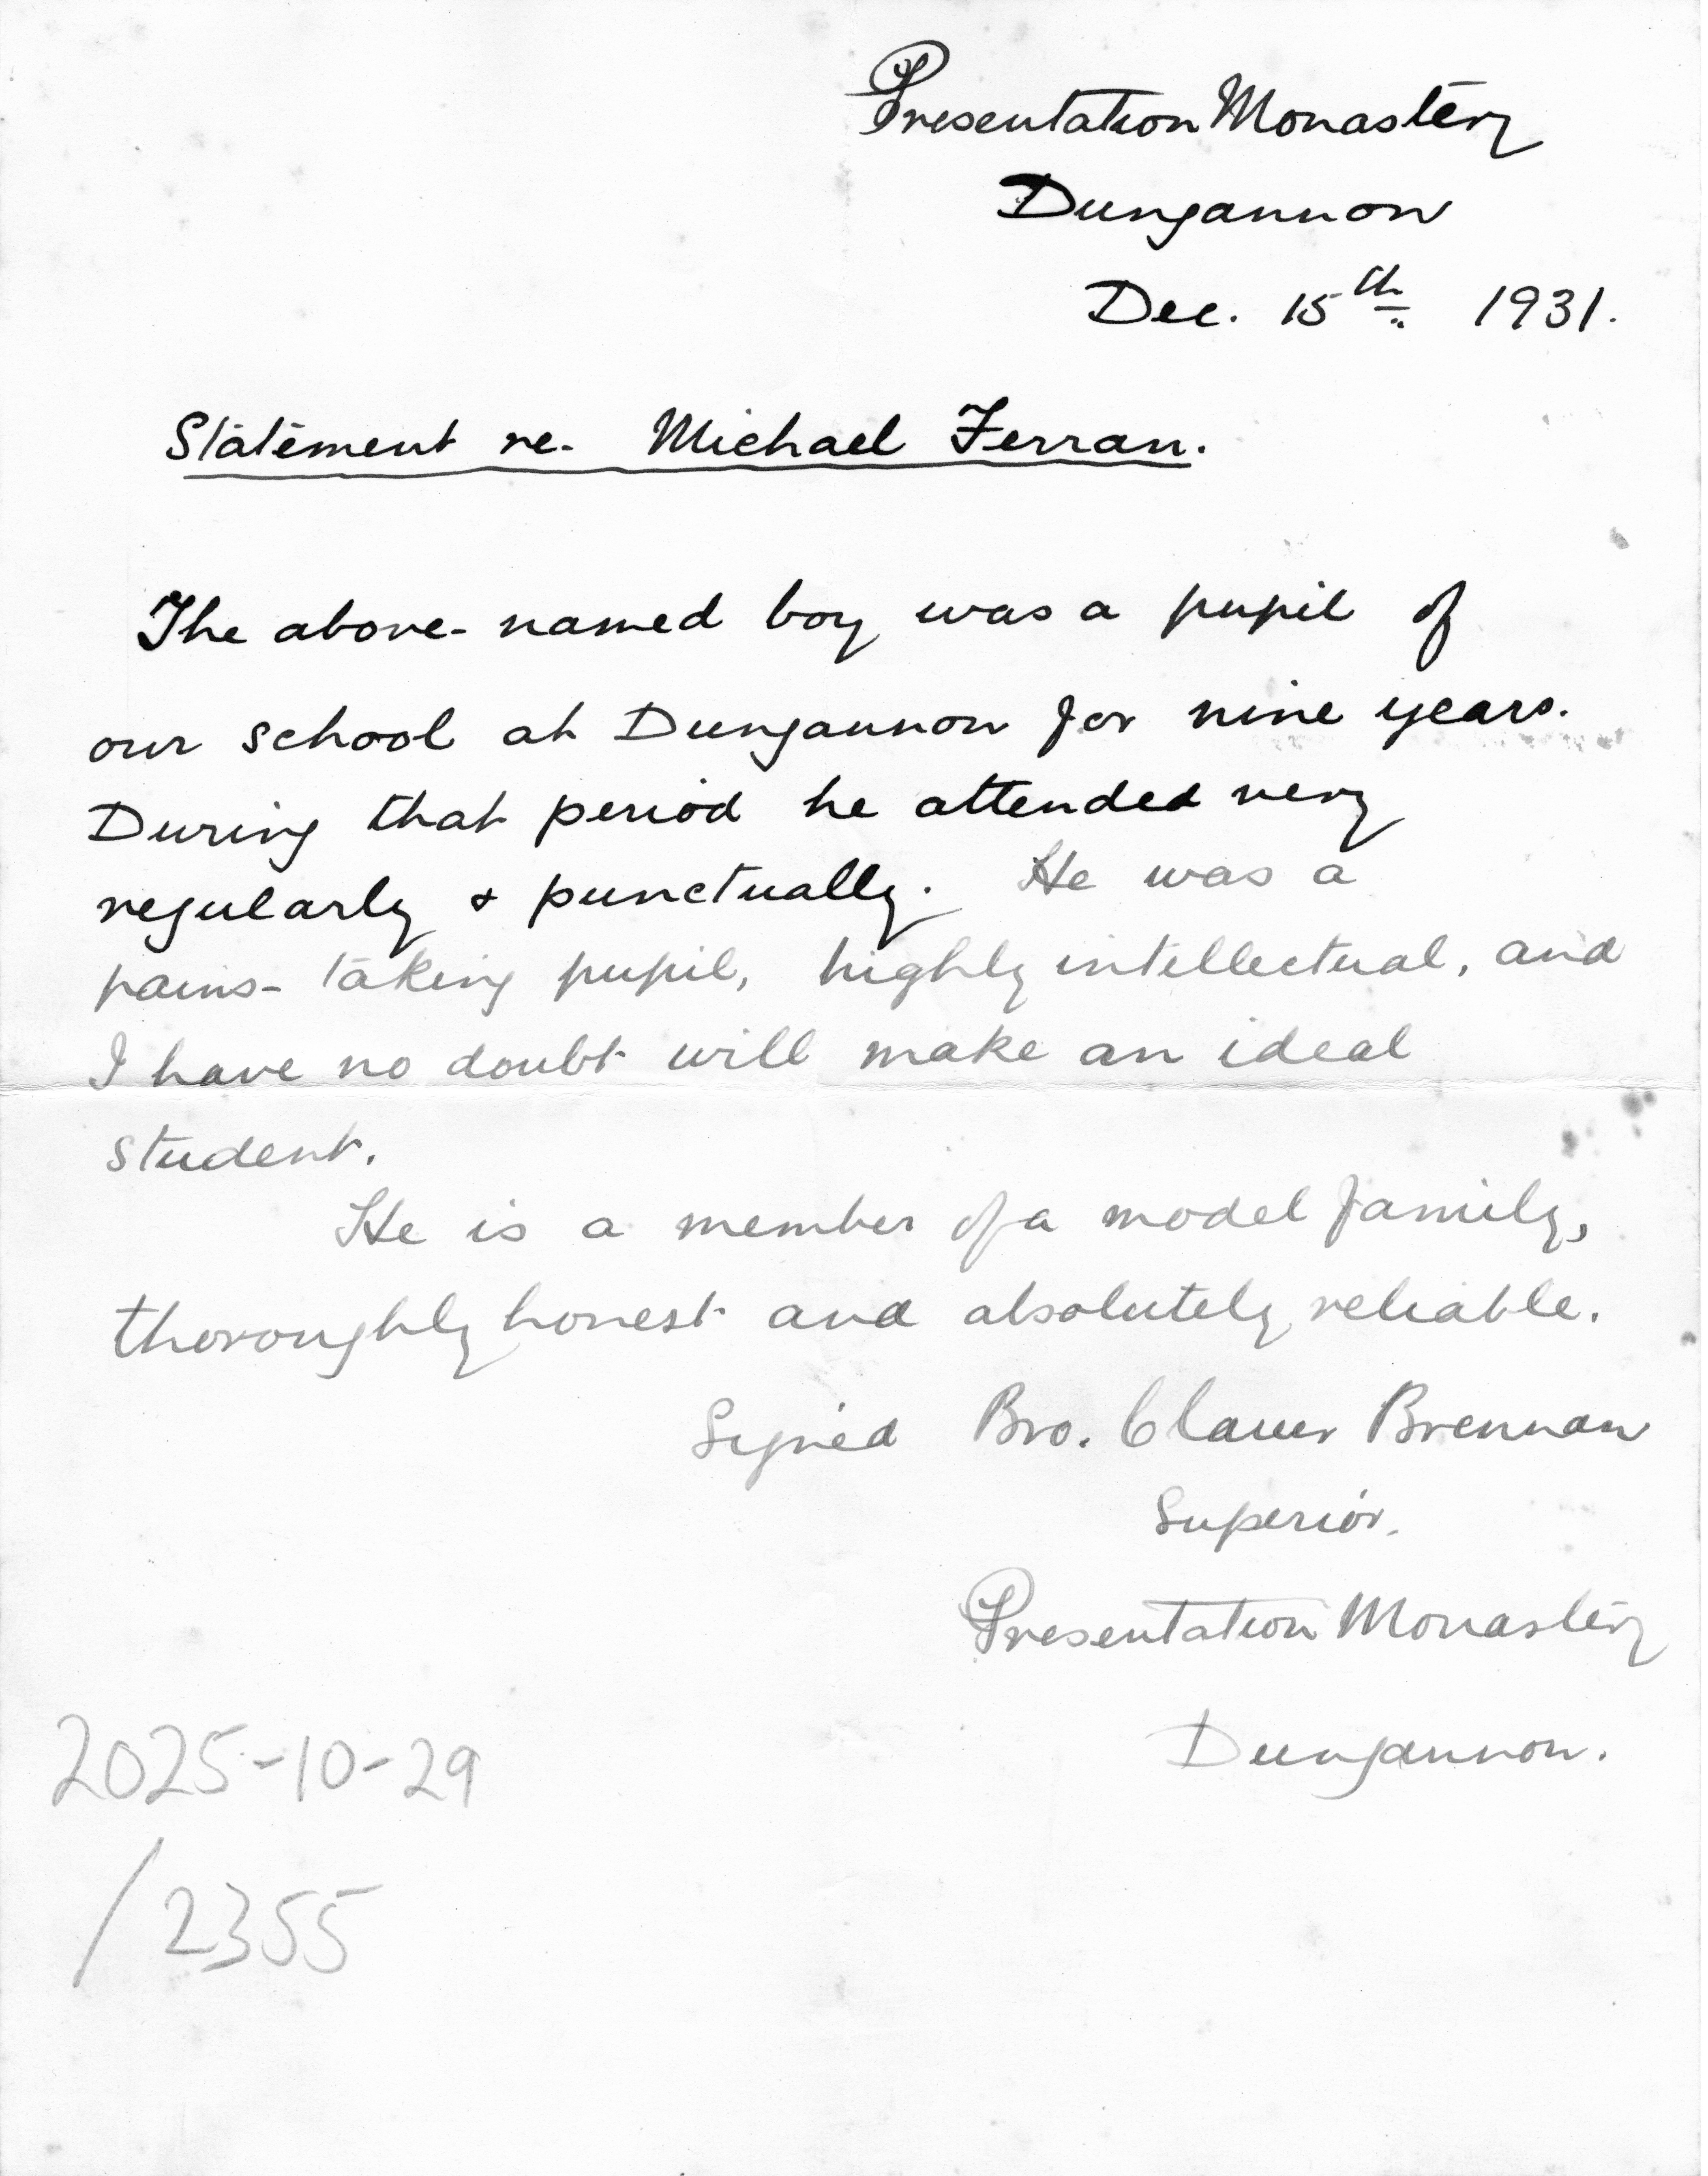 Presentation Monastery
Dungannon
Dec. 15th 1931.
Statement re. Michael Ferran.
The above-named boy was a pupil of
our school at Dungannon for nine years.
During that period he attended very
regularly & punctually. He was a
pains-taking pupil, highly intellectual, and
I have no doubt will make an ideal
student.
He is a member of a model family,
thoroughly honest and absolutely reliable.
Signed Bro. Brennan
Superior.
Presentation Monastery
Dungannon.
2025-10-29
/2355